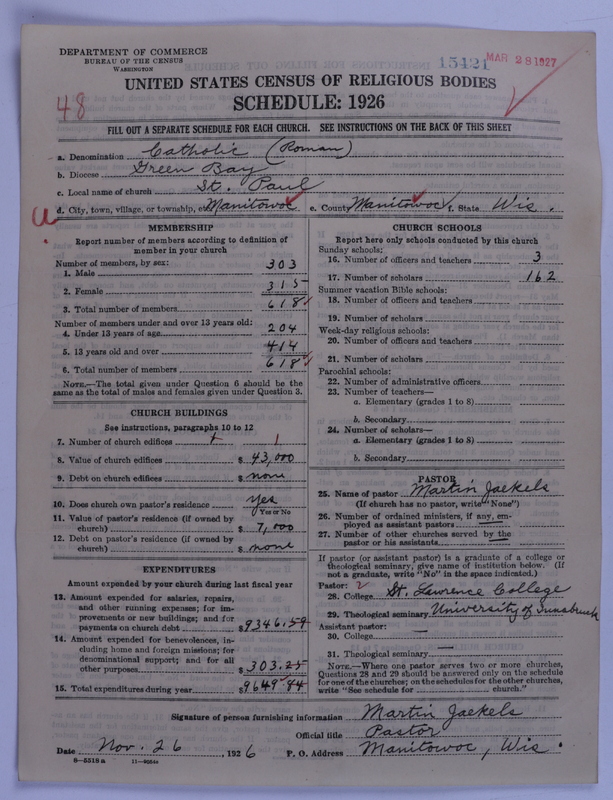 DEPARTMENT OF COMMERCE
BUREAU OF THE CENSUS
WASHINGTON
15421 MAR 28 1927
UNITED STATES CENSUS OF RELIGIOUS BODIES
48
SCHEDULE: 1926
FILL OUT A SEPARATE SCHEDULE FOR EACH CHURCH. SEE INSTRUCTIONS ON THE BACK OF THIS SHEET
a. Denomination Catholic (Roman)
b. Diocese Green Bay
c. Local name of church St. Paul
d. City, town, village, or township, etc. Manitowoc e. County Manitowoc f. State Wis.
MEMBERSHIP
Report number of members according to definition of
member in your church
Number of members, by sex:
1. Male 303
2. Female 315
3. Total number of members 618
Number of members under and over 13 years old:
4. Under 13 years of age 204
5. 13 years old and over 414
6. Total number of members 618
NOTE.—The total given under Question 6 should be
same as the total of males and females given under Question 3.
CHURCH BUILDINGS
See instructions, paragraphs 10 to 12
7. Number of church edifices 1
8. Value of church edifices $ 43,000
9. Debt on church edifices $ none
10. Does church own pastor's residence yes
Yes or No
11. Value of pastor's residence (if owned by
church) $ 7,000
12. Debt on pastor's residence (if owned by
church) $ none
EXPENDITURES
Amount expended by your church during last fiscal year
13. Amount expended for salaries, repairs,
and other running expenses; for im-
provements or new buildings; and for
payments on church debt $ 9346.59
14. Amount expended for benevolences, in-
cluding home and foreign missions; for
denominational support; and for all
other purposes $ 303.25
15. Total expenditures during year $ 9649.84
CHURCH SCHOOLS
Report here only schools conducted by this church
Sunday schools:
16. Number of officers and teachers 3
17. Number of scholars 162
Summer vacation Bible schools:
18. Number of officers and teachers
19. Number of scholars
Week-day religious schools:
20. Number of officers and teachers
21. Number of scholars
Parochial schools:
22. Number of administrative officers
23. Number of teachers—
a. Elementary (grades 1 to 8)
b. Secondary
24. Number of scholars—
a. Elementary (grades 1 to 8)
b. Secondary
PASTOR
25. Name of pastor Martin Jaekels
(If church has no pastor, write "None")
26. Number of ordained ministers, if any, em-
ployed as assistant pastors —
27. Number of other churches served by the
pastor or his assistants —
If pastor (or assistant pastor) is a graduate of a college or
theological seminary, give name of institution below. (If
not a graduate, write "No" in the space indicated.)
Pastor: 2
28. College St. Lawrence College
29. Theological seminary University of Innsbruck
Assistant pastor:
30. College —
31. Theological seminary —
NOTE.—Where one pastor serves two or more churches,
Questions 28 and 29 should be answered only on the schedule
for one of the churches; on the schedules for the other churches,
write "See schedule for church."
Signature of person furnishing information Martin Jaekels
Official title Pastor
Date Nov. 26, 1926 P. O. Address Manitowoc, Wis.
8—5518a 11—9204a